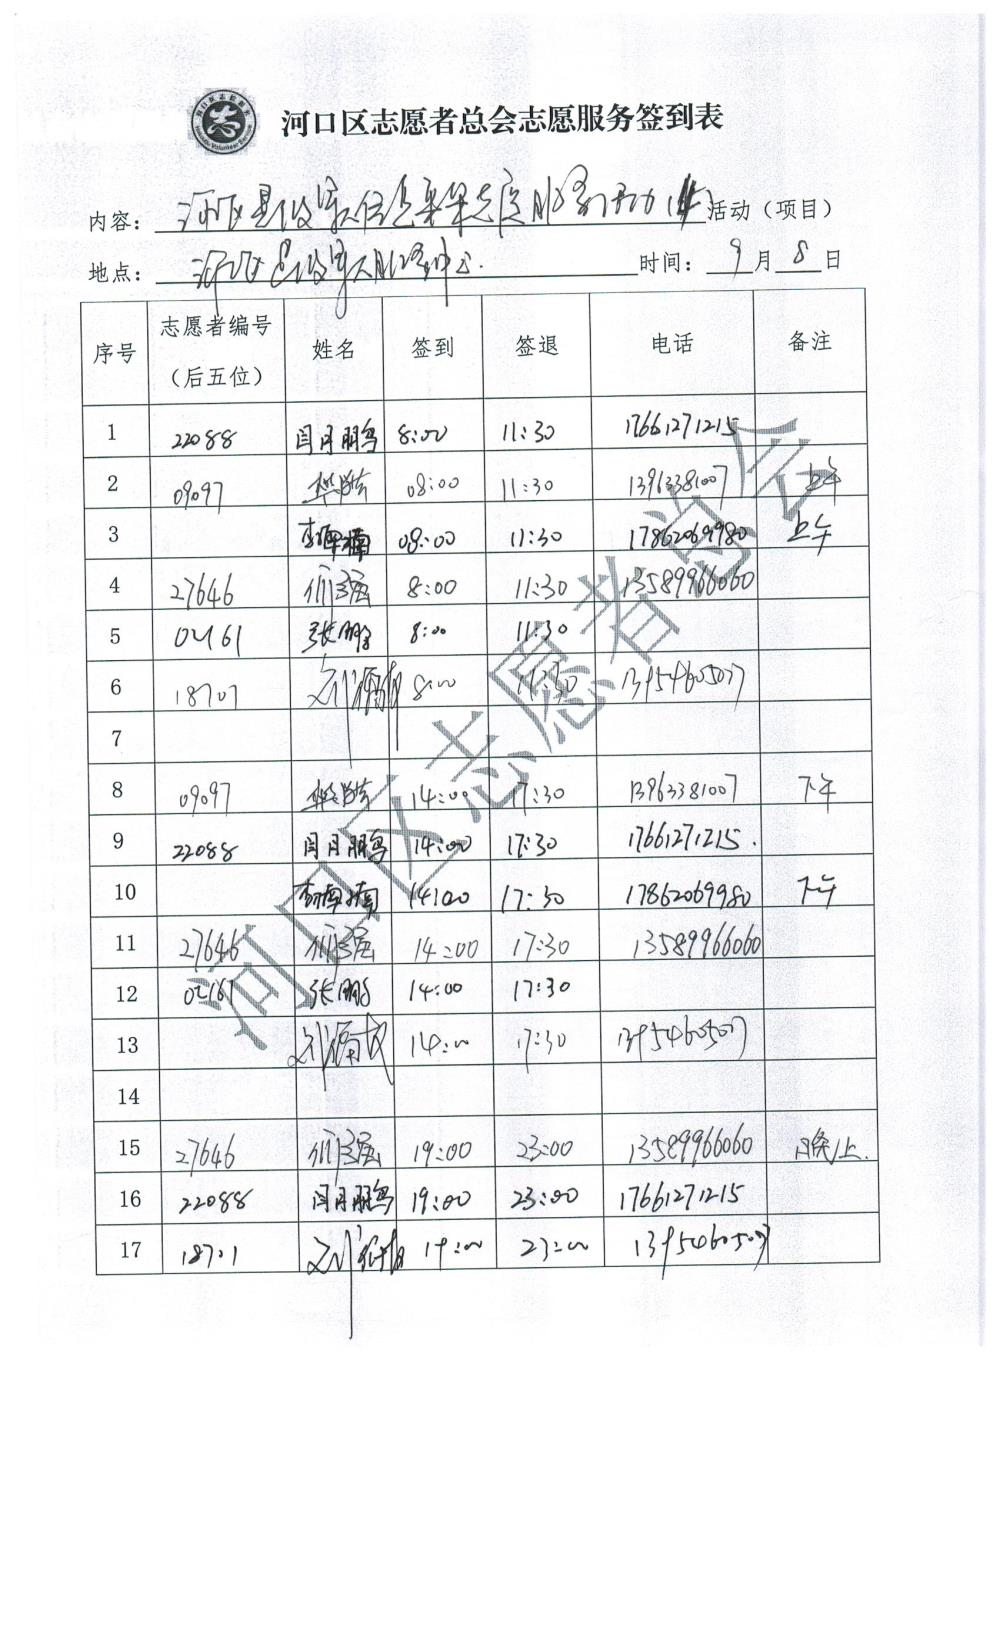 河口区志愿者总会志愿服务签到表
内容： 活动（项目）
地点： 时间：9月8日
序号 志愿者编号（后五位） 姓名 签到 签退 电话 备注
1 22088 闫月鹏 8:00 11:30 17661271215
2 09097 08:00 11:30 13963381007 上午
3 李楠楠 08:00 11:30 17862069980 上午
4 27646 8:00 11:30 13589966060
5 02161 张鹏 8:00 11:30
6 18701 8:00 11:30 13954605077
7
8 09097 14:00 17:30 13963381007 下午
9 22088 闫月鹏 14:00 17:30 17661271215.
10 李楠楠 14:00 17:30 17862069980 下午
11 27646 14:00 17:30 13589966060
12 02161 张鹏 14:00 17:30
13 14:00 17:30 13954605077
14
15 27646 19:00 23:00 13589966060 晚上.
16 22088 闫月鹏 19:00 23:00 17661271215
17 18701 19:00 23:00
河口区志愿者总会